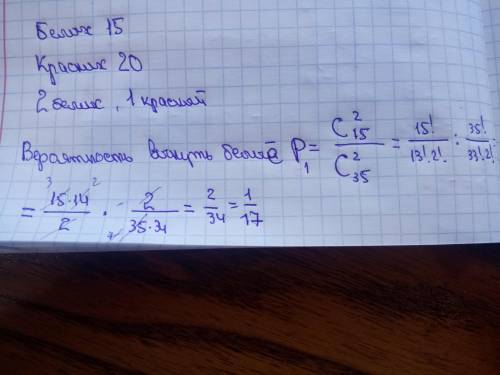 Белых 15
Красных 20
2 белых, 1 красный
Вероятность вынуть белые P₁ = C²₁₅ / C²₃₅ = 15! / 13!·2! : 35! / 33!·2!
= 15·14 / 2 · 2 / 35·34 = 2/34 = 1/17